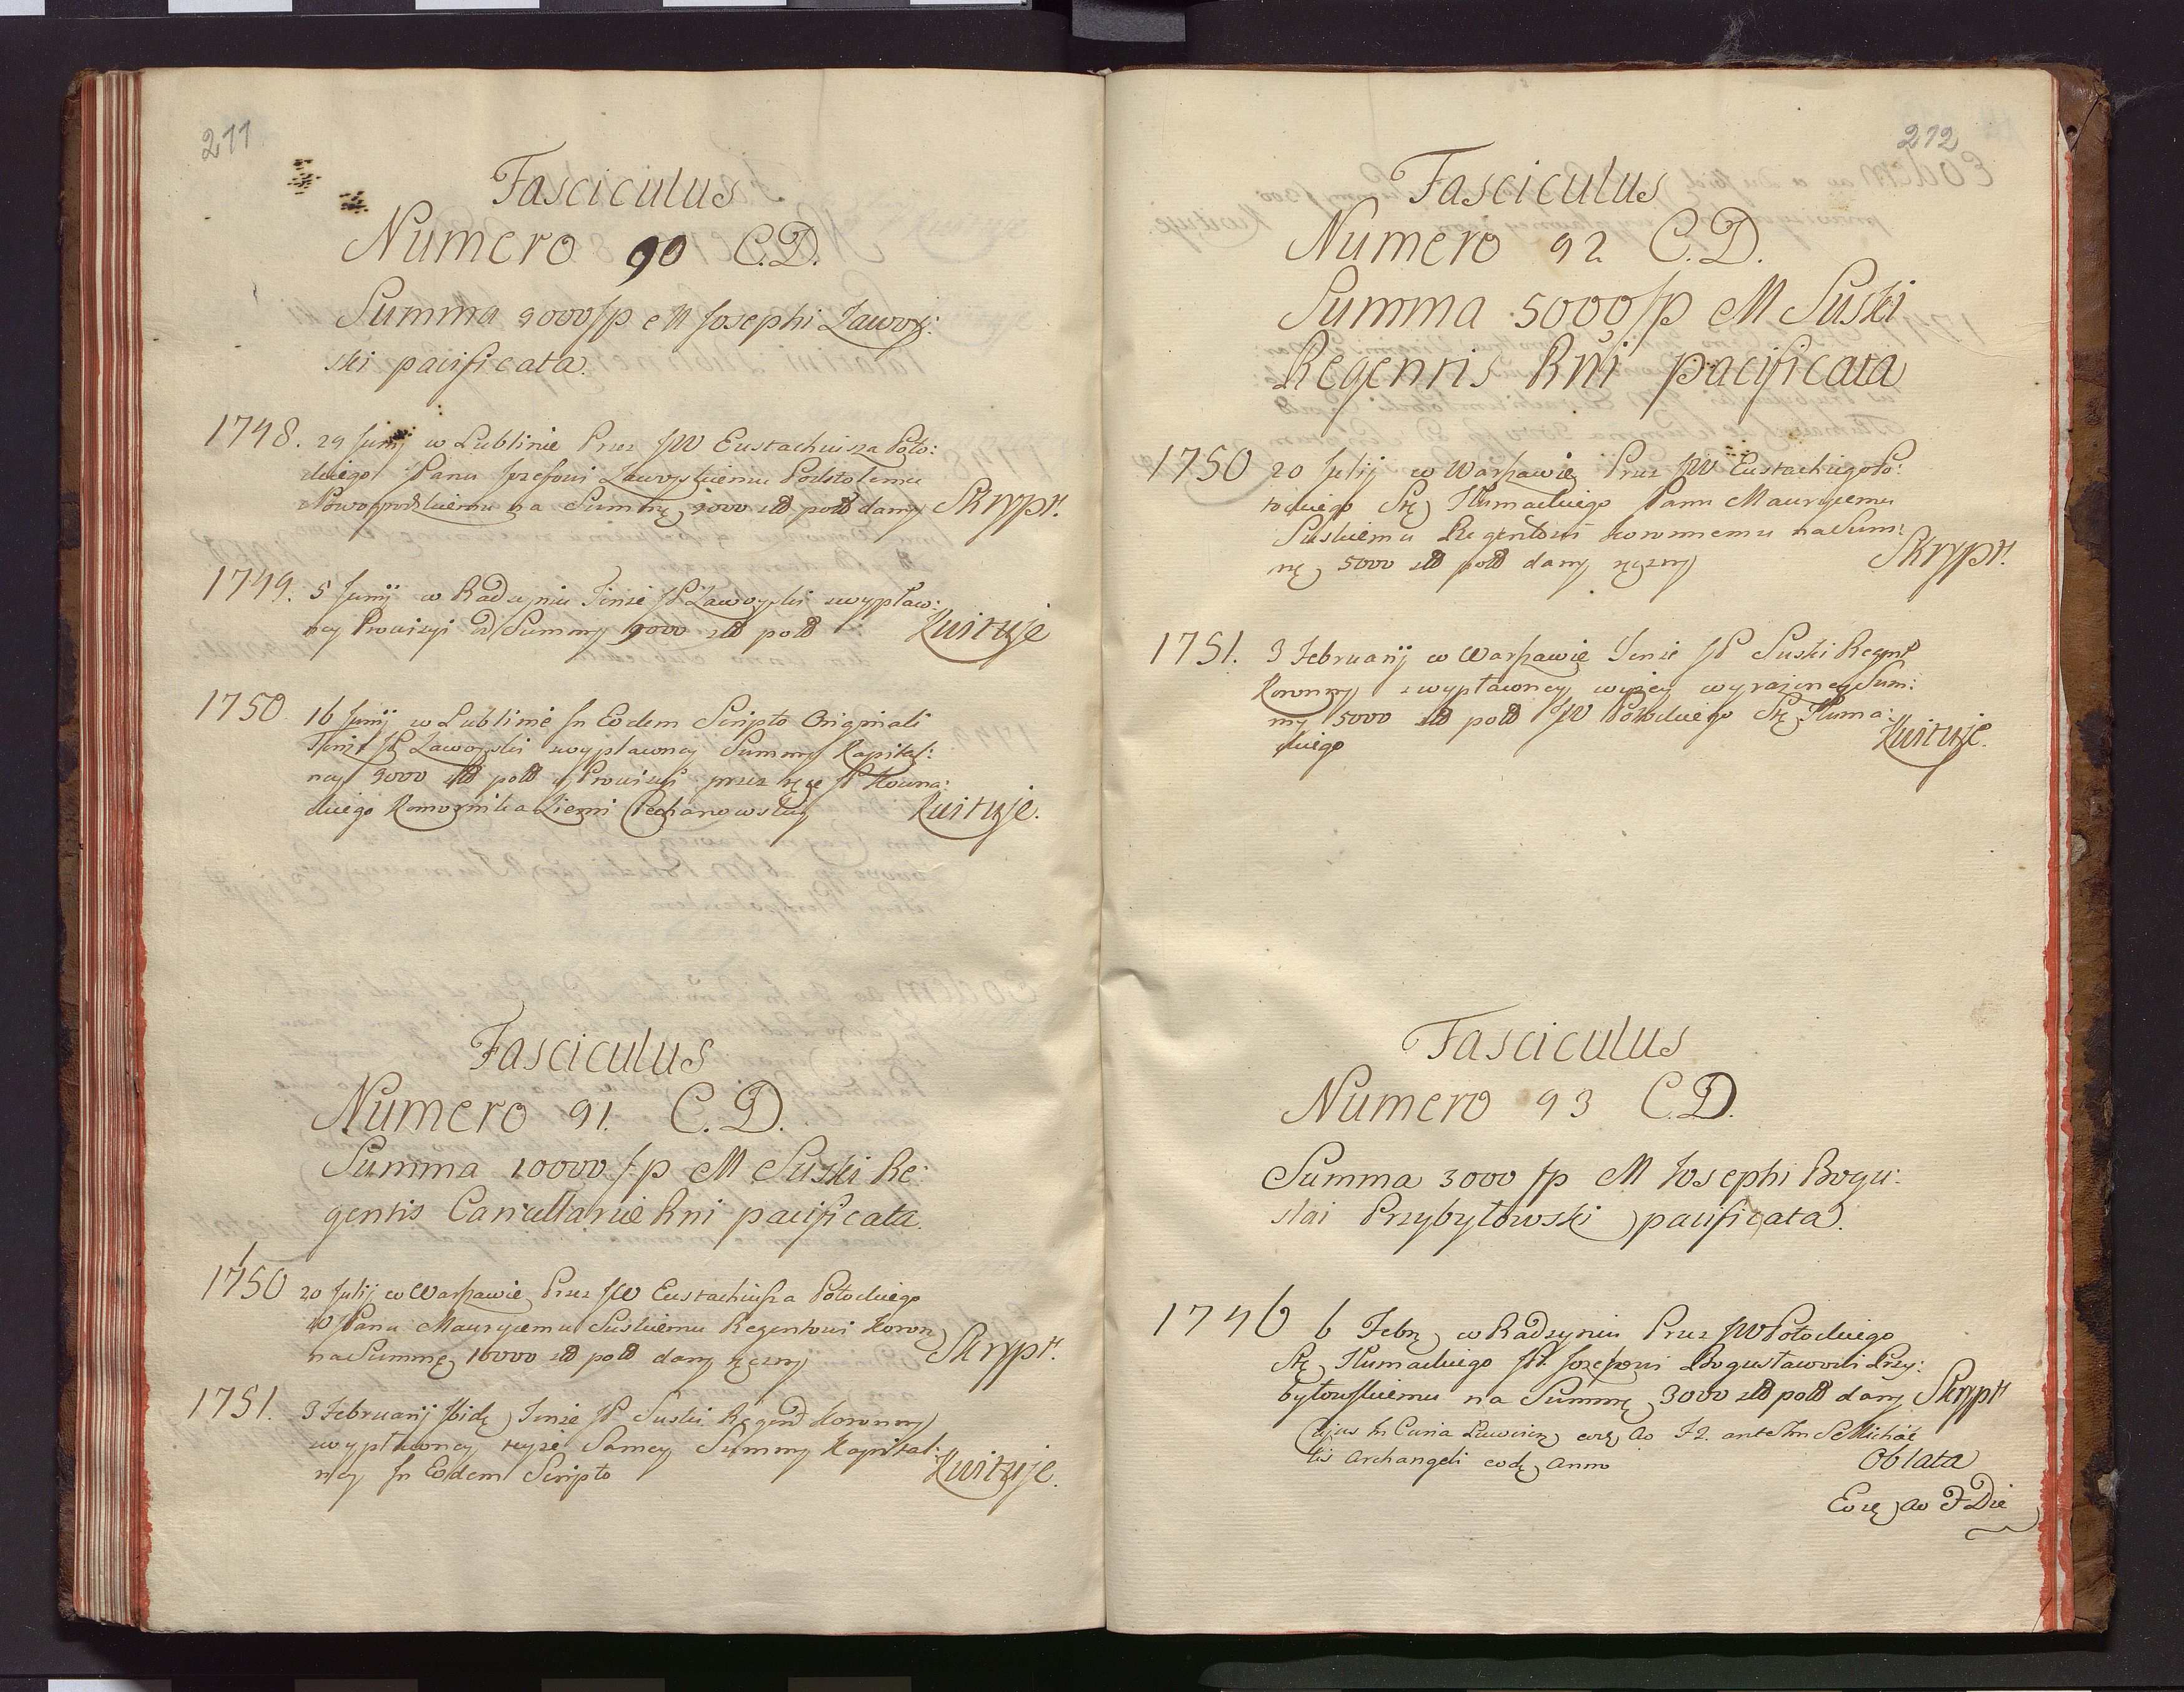 211
Fasciculus
Numero 90 C.D.
Summa 9000 fp M Josephi Zawoy:
ski pacificata.
1748. 29 Junij w Lublinie Przez JW Eustachiusza Poto:
ckiego JPanu Jozefowi Zawoyskiemu Podstolemu
Nowogrodzkiemu na Summę 9000 złł poll dany Skrypt.
1749. 5 Junij w Radzyniu Tenże JP Zawoyski zwypłaco:
ney Prowizyi od Summy 9000 złł poll Kwituje
1750 16 Junij w Lublinie In Eodem Scripto Originali
Tenże JP Zawoyski zwypłaconey Summy Kapital:
ney 9000 złł poll y Prowizyi przez ręce JP Kowna:
ckiego Komornika Ziemi Ciechanowskiey Kwituje.
Fasciculus
Numero 91. C.D.
Summa 10000 fp M Suski Re:
gentis Cancellariæ Rni pacificata.
1750 20 Julij w Warszawie Przez JW Eustachiusza Potockiego
JPanu Maurycemu Suskiemu Regentowi Koron
na Summę 10000 złł poll dany ręczny Skrypt.
1751. 3 Februarij Ibidę Tenże JP Suski Regent Koronny
zwypłaconey teyże Samey Summy Kapital:
ney In Eodem Scripto Kwituje.
212
Fasciculus
Numero 92 C.D.
Summa 5000 fp M Suski
Regentis Rni pacificata
1750 20 Julij w Warszawie Przez JW Eustachiego Po:
tockiego Stę Tłumackiego Panu Maurycemu
Suskiemu Regentowi Koronnemu na Sum:
mę 5000 złł poll dany ręczny Skrypt.
1751. 3 Februarij w Warszawie Tenże JP Suski Regent
Koronny zwypłaconey wyżey wyrażoney Sum:
my 5000 złł poll JW Potockiego Stę Tłuma:
ckiego Kwituje.
Fasciculus
Numero 93 C.D.
Summa 3000 fp M Josephi Bogu:
slai Przybyłowski pacificata.
1746 6 Febrę w Radzyniu Przez JW Potockiego
Stę Tłumackiego JP. Jozefowi Bogusławowi Przy:
byłowskiemu na Summę 3000 złł poll dany Skrypt
Cujus In Curia ante Fm S Michaë
lis Archangeli eodę Anno Oblata
Die